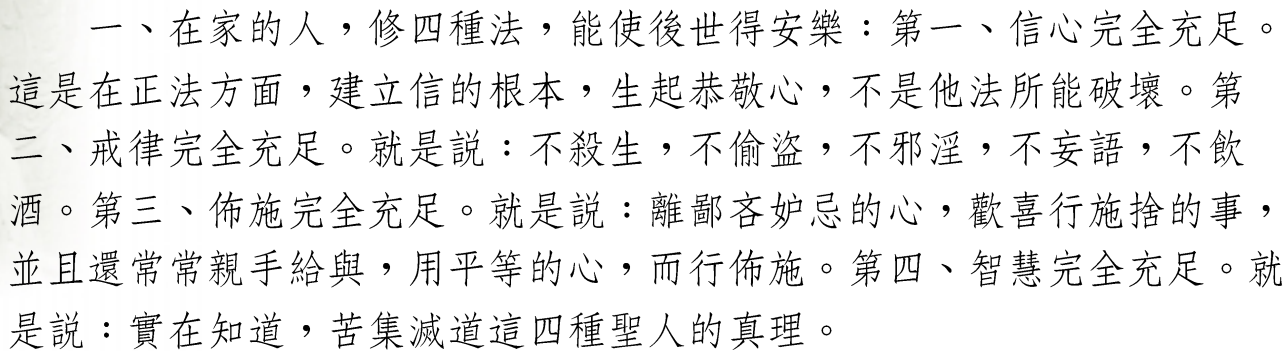 一、在家的人，修四種法，能使後世得安樂：第一、信心完全充足。
這是在正法方面，建立信的根本，生起恭敬心，不是他法所能破壞。第
二、戒律完全充足。就是説：不殺生，不偷盜，不邪淫，不妄語，不飲
酒。第三、佈施完全充足。就是説：離鄙吝妒忌的心，歡喜行施捨的事，
並且還常常親手給與，用平等的心，而行佈施。第四、智慧完全充足。就
是説：實在知道，苦集滅道這四種聖人的真理。